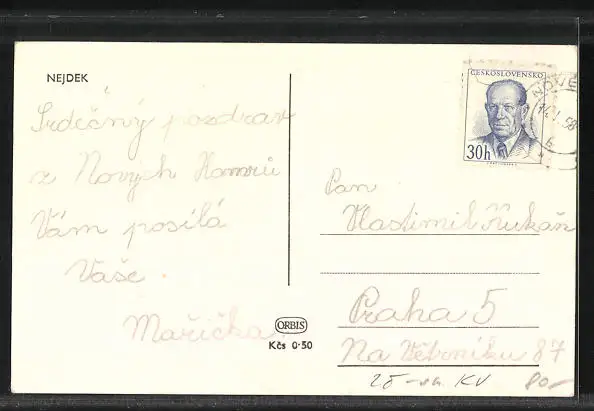 NEJDEK
Srdečný pozdrav
z Nových Hamrů
Vám posílá
Vaše.
Mařička.
ORBIS
Kčs 0·50
ČESKOSLOVENSKO
30h
NOVÉ
14.I.58
Pan
Vlastimil Řukař
Praha 5
Na Větrníku 87
25-
KV
80.-